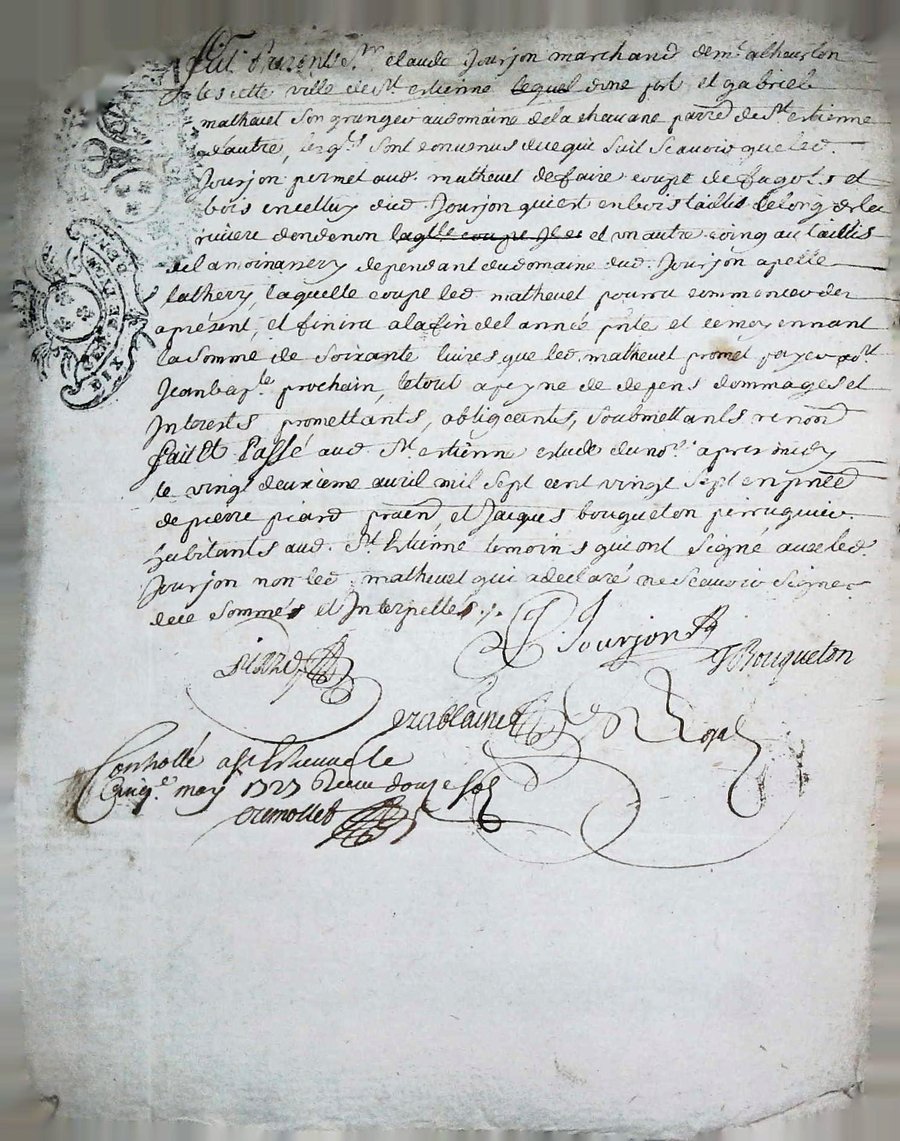 Fut Present Sr claude Jourjon marchand demt a
cette ville de St estienne lequel done part et gabriel
mathevet son granger au domaine de la chavane parred de St estienne
d'autre, lesqls sont convenus de ce qui suit scavoir que led.
Jourjon permet aud. mathevet de faire coupe de fagots et
bois en celluy dud Jourjon qui est en bois taillis le long de la
riviere dondenon laqlle coupe et un autre coing au taillis
de la dependant du domaine dud. Jourjon apelle
lathery, laquelle coupe led mathevet pourra commencer des
apresent, et finira a la fin de l année pnte et ce moyennant
la somme de soixante livres que led. mathevet promet payer a St
Jean bapte prochain, le tout a peyne de depens dommages et
Interests, promettants, obligeants, soubmettants renond
fait Et Passé aud St estienne estude du nore apres midy
le vingt deuxieme avril mil sept cent vingt sept en pnced
de pierre picard praend, et Jacques bouqueton perruquier
habitants aud. St Etienne temoins qui ont signé avec led.
Jourjon non led mathevet qui a declaré ne scavoir signer
de ce sommés et Interpellés ./.
C Jourjon
Picard
J Bouqueton
Royal
Controllé a St Estienne le
Cinqe may 1727 Receu douze sols
DIX DEN
GEN DE LYON